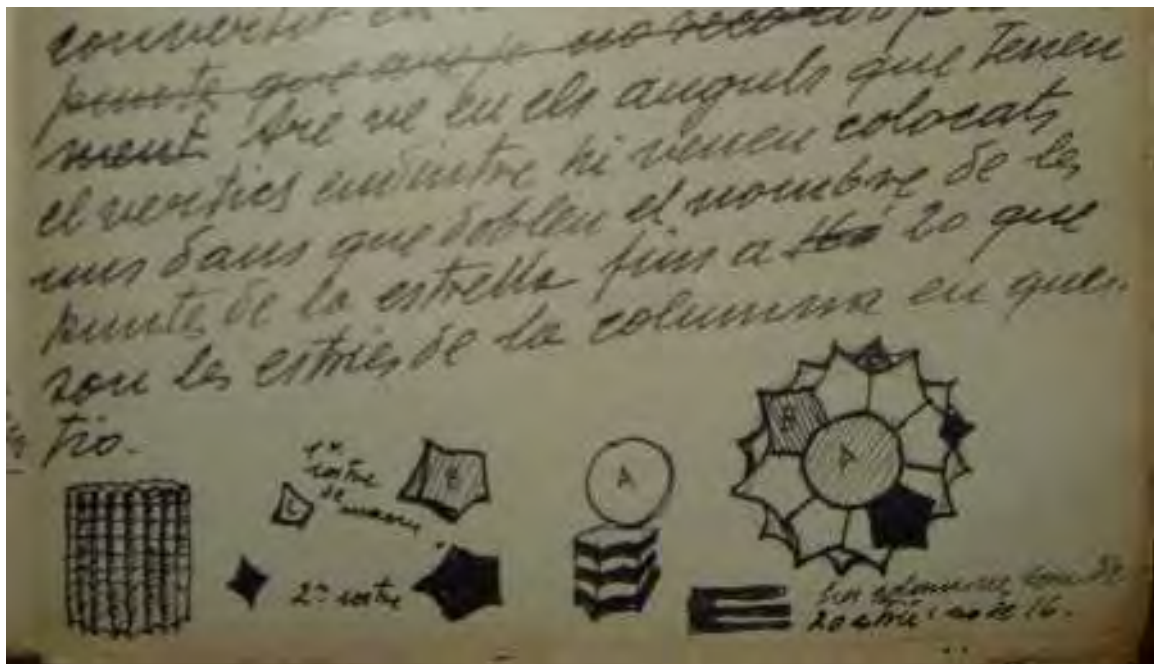 convertit en
punts que
ment. Are ve en els anguls que tenen
el vertics endintre hi venen colocats
uns daus que doblen el nombre de les
punts de la estrella fins a 20 que
son les estries de la columna en ques-
tio.
1ª rostre de
B
C
A
2ª rostre
B
A
Les columnes son de
20 estri no de 16.